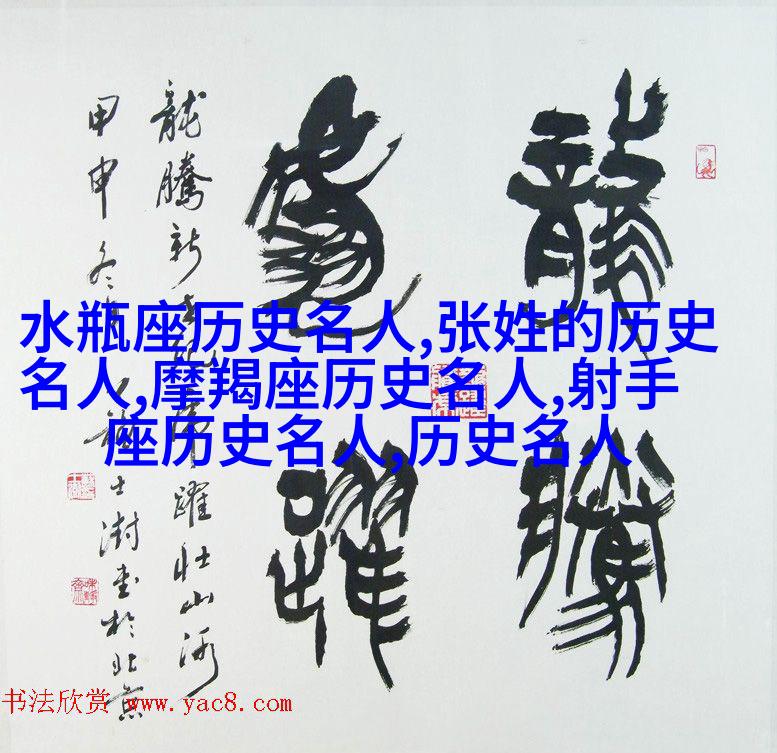 龍騰
虎躍
龍騰新世紀虎躍壯山河
甲申冬月
士澍書於北京
水瓶座历史名人,张姓的历史
名人,摩羯座历史名人,射手
座历史名人,历史名人
书法欣赏 www.yac8.com